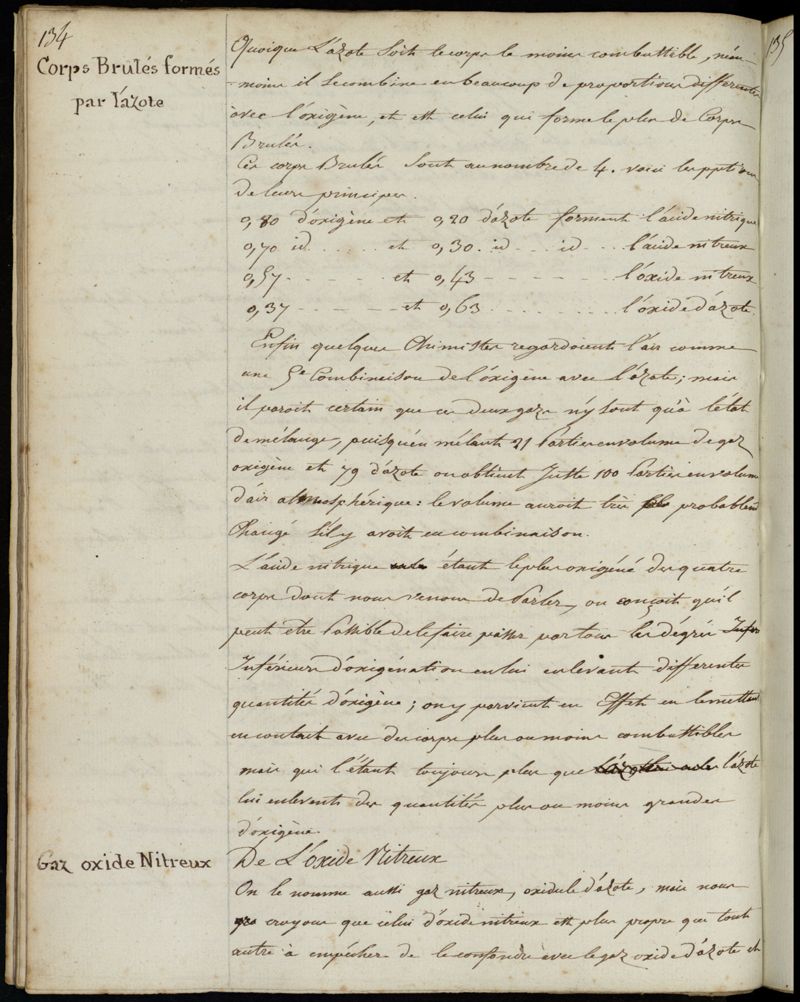 134
135
Corps Brulés formés
par l'azote
Quoique L'azote soit le corps le moins combustible, néan-
moins il se combine en beaucoup de proportions différentes
avec l'oxigène, et est celui qui forme le plus de Corps
Brulés.
Ces corps Brulés sont au nombre de 4. voici les pptions
de leurs principes.
0,80 d'oxigène et 0,20 d'azote forment l'acide nitrique
0,70 id . . . . . et 0,30. id . . . id . . . l'acide nitreux
0,57 - - - - - - et 0,43 - - - - - - - l'oxide nitreux
0,37 - - - - - et 0,63 . . . . . . . . l'oxide d'azote.
Enfin quelques Chimistes regardoient l'air comme
une 5e Combinaison de l'oxigène avec l'azote; mais
il paroit certain que ces deux gazs n'y sont qu'à l'état
de mélange, puisqu'en mélant 21 Parties en volume de gaz
oxigène et 79 d'azote on obtient Juste 100 Parties en volume
d'air atmosphérique: le volume auroit très probablemt
Changé s'il y avoit eu combinaison.
L'acide nitrique étant le plus oxigéné des quatre
corps dont nous venons de Parler, on conçoit qu'il
peut etre Possible de le faire passer par tous les dégrés Infer
Inférieurs d'oxigénation en lui enlevant différentes
quantités d'oxigène; on y parvient en Effet en le mettant
en contact avec des corps plus ou moins combustibles
mais qui l'étant toujours plus que l'azote
lui enlevent des quantités plus ou moins grandes
d'oxigène.
Gaz oxide Nitreux
De L'oxide Nitreux
On le nomme aussi gaz nitreux, oxidule d'azote, mais nous
croyons que celui d'oxide nitreux est plus propre que tout
autre à empécher de le confondre avec le gaz oxide d'azote et